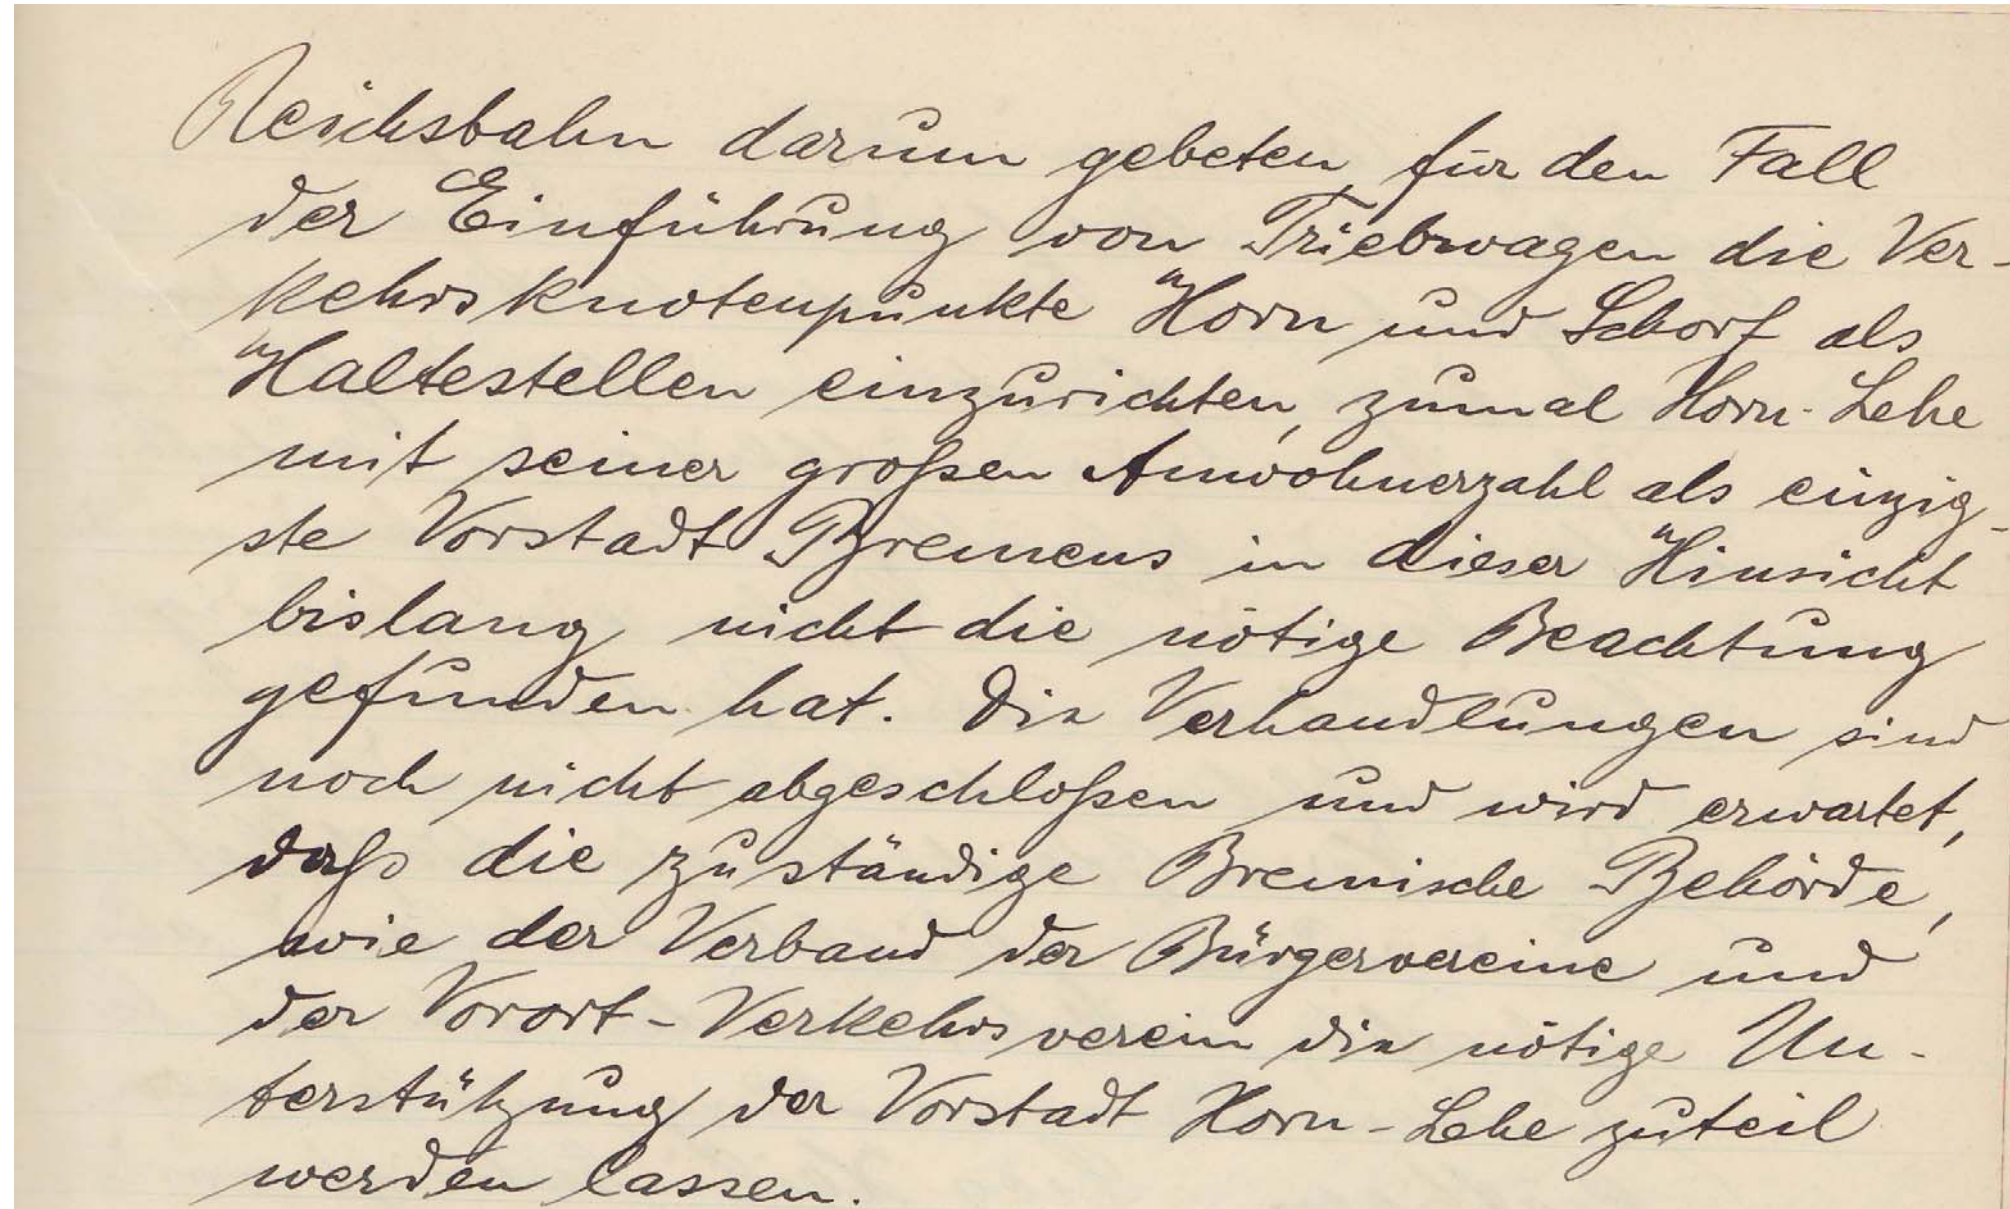 Reichsbahn darum gebeten für den Fall
der Einführung von Triebwagen die Ver-
kehrsknotenpunkte Horn und Schorf als
Haltestellen einzurichten, zumal Horn-Lehe
mit seiner großen Anwohnerzahl als einzig-
ste Vorstadt Bremens in dieser Hinsicht
bislang nicht die nötige Beachtung
gefunden hat. Die Verhandlungen sind
noch nicht abgeschloßen und wird erwartet,
daß die zuständige Bremische Behörde,
wie der Verband der Bürgervereine und
der Vorort-Verkehrsverein die nötige Un-
terstützung der Vorstadt Horn-Lehe zuteil
werden lassen.